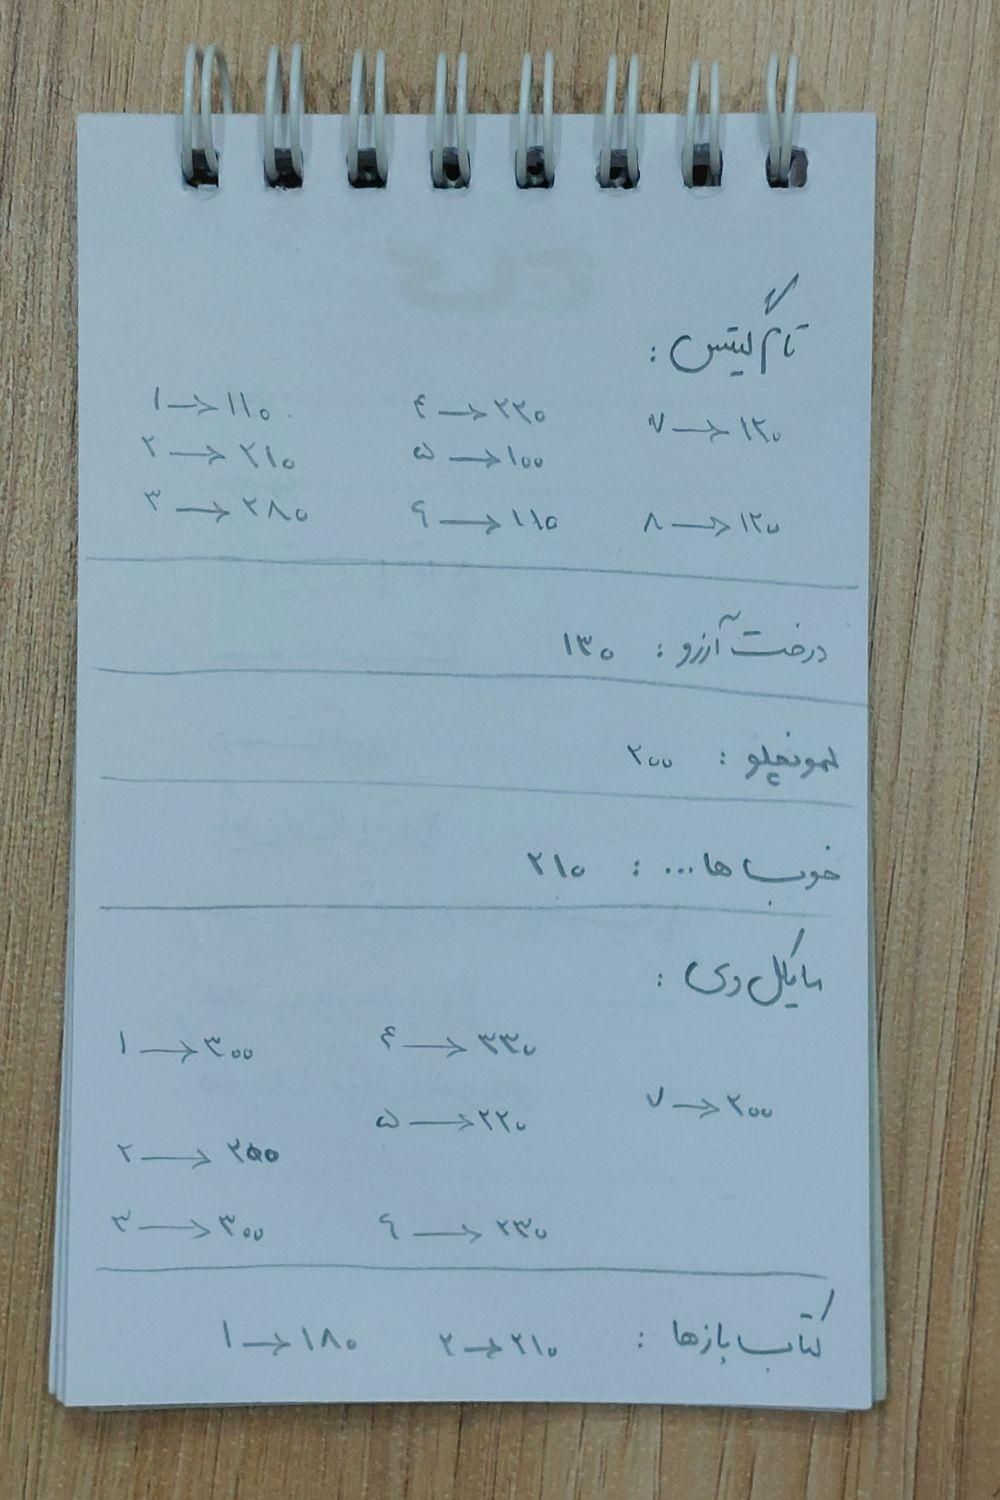 تام گیتس :
۱ → ۱۱۰
۲ → ۲۱۰
۳ → ۲۸۰
۴ → ۲۲۰
۵ → ۱۰۰
۶ → ۱۱۵
۷ → ۱۲۰
۸ → ۱۲۰
درخت آرزو : ۱۳۰
لمونچلو : ۲۰۰
خوب ها ... : ۲۱۰
مایکل وی :
۱ → ۳۰۰
۲ → ۲۵۰
۳ → ۳۰۰
۴ → ۳۳۰
۵ → ۲۲۰
۶ → ۲۳۰
۷ → ۲۰۰
کتاب بازها : ۱ → ۱۸۰ ۲ → ۲۱۰